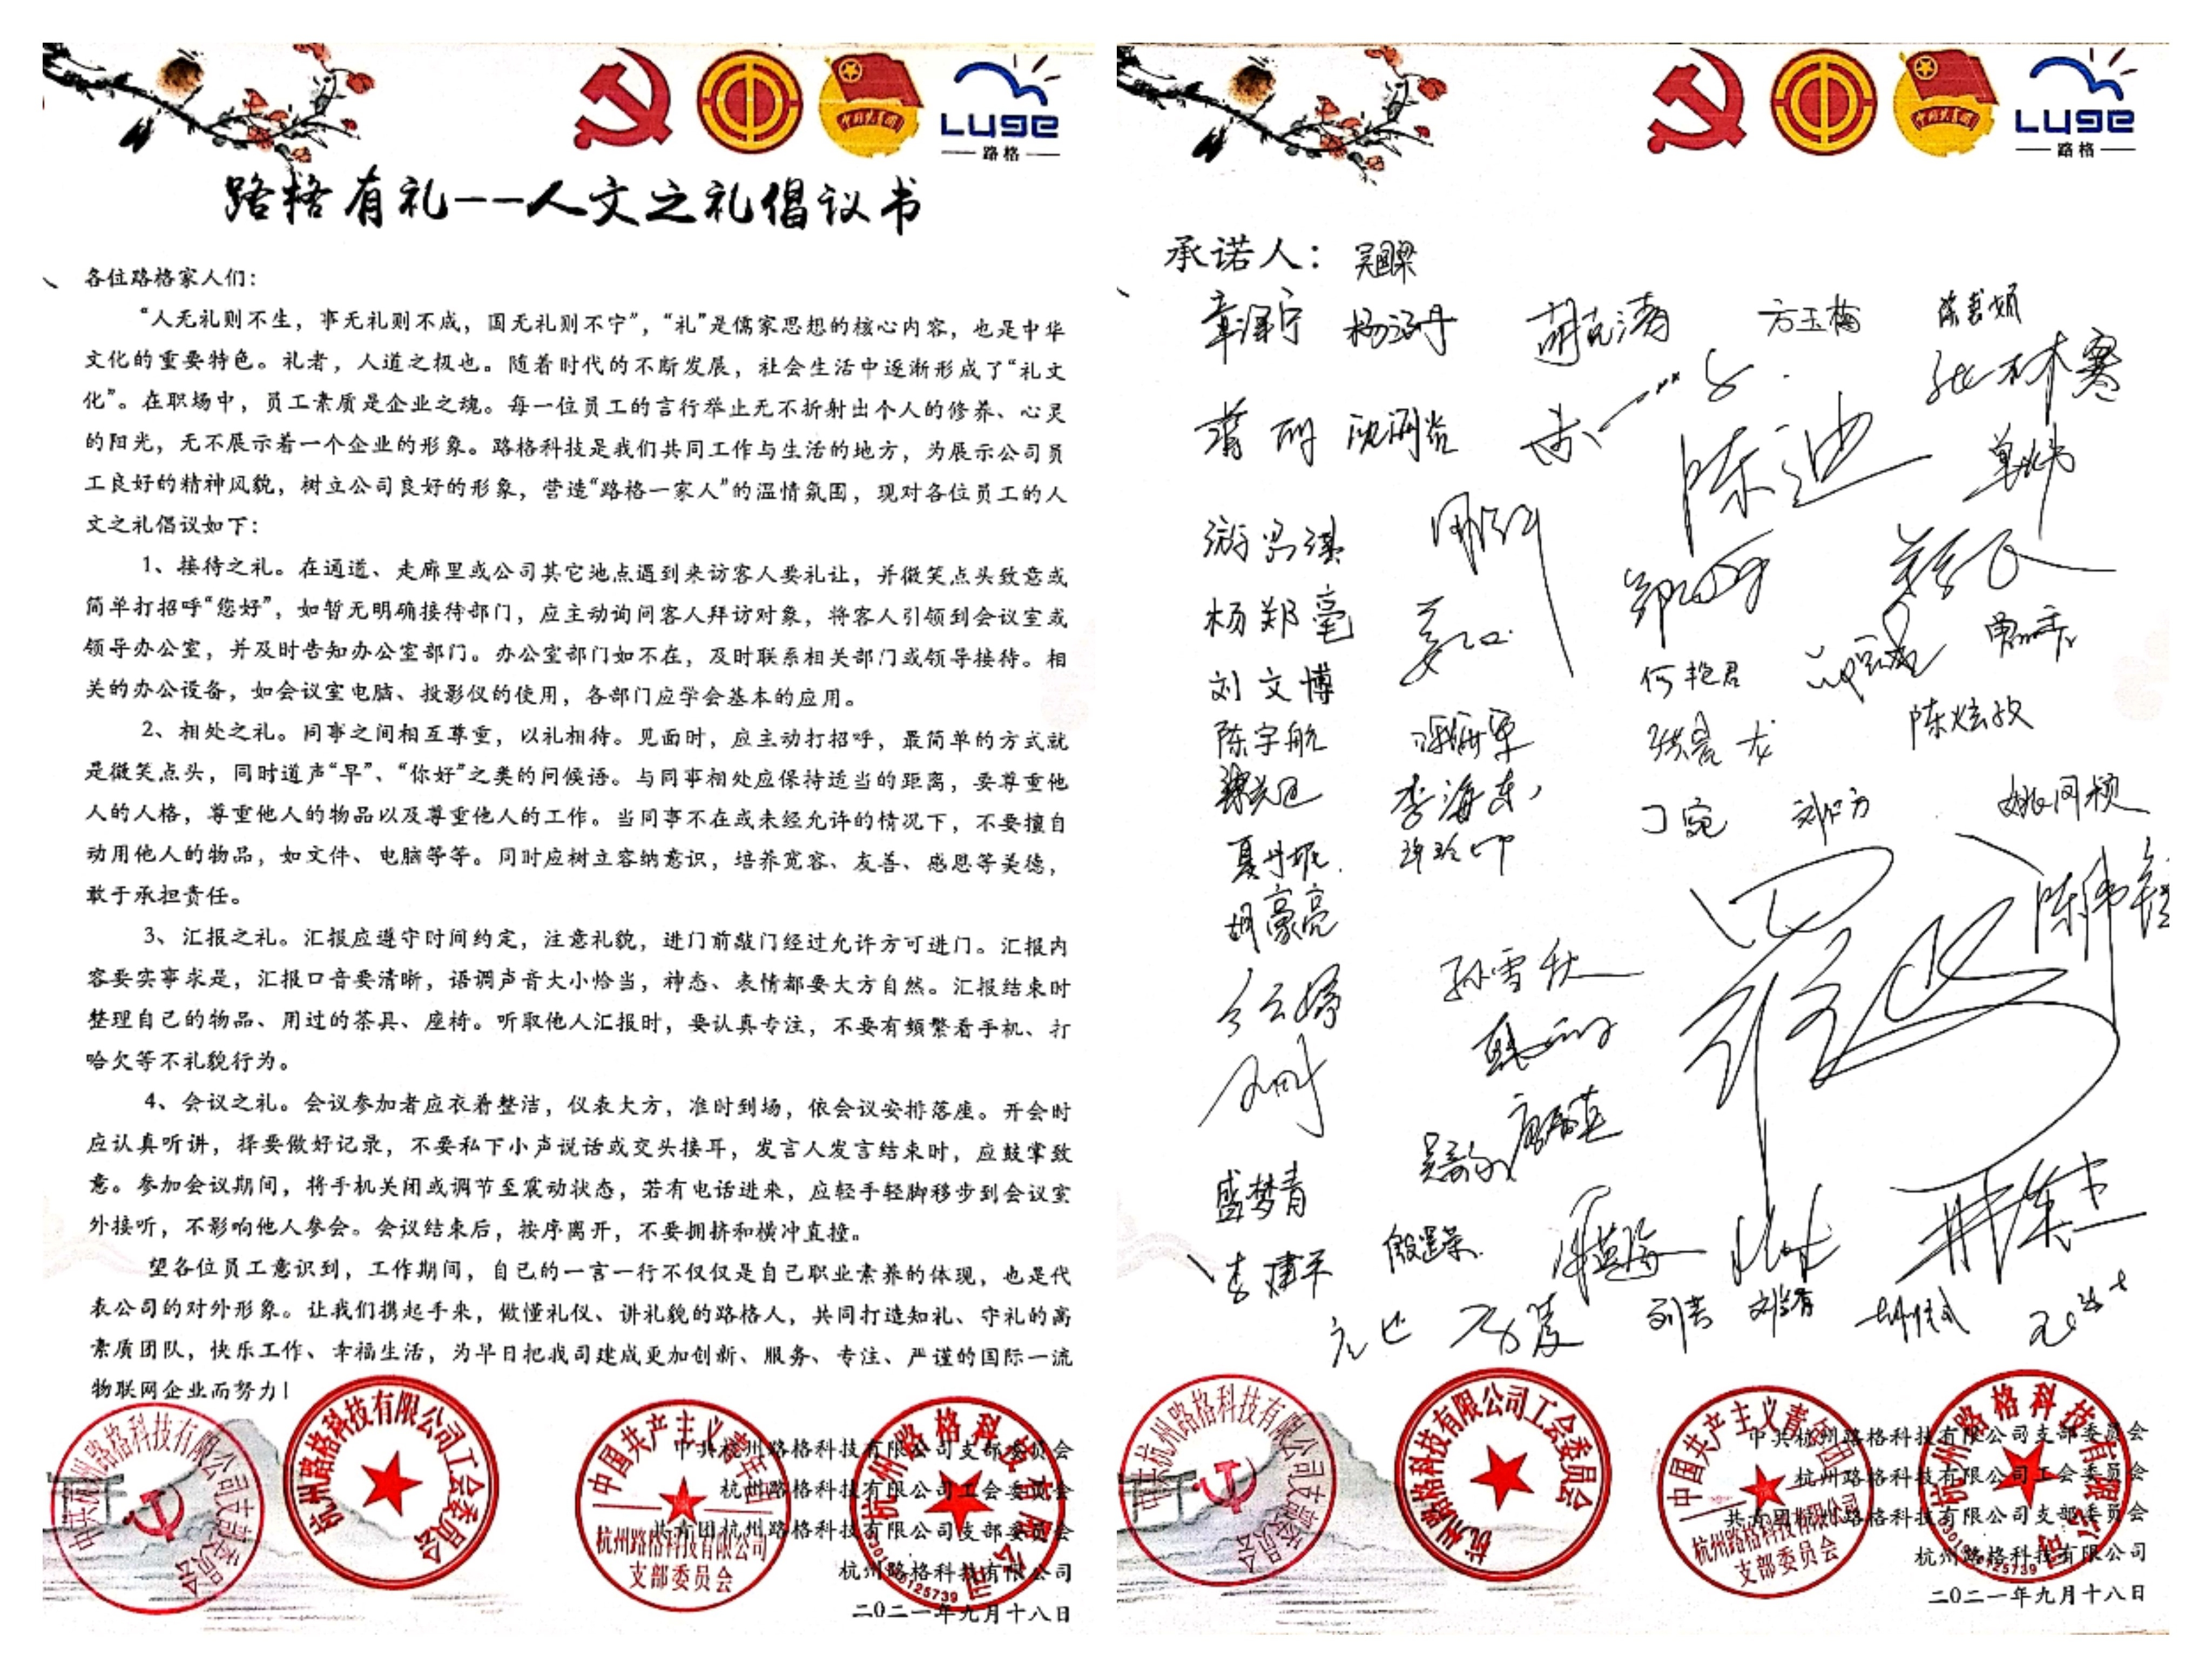 LUGE
路格
路格有礼--人文之礼倡议书
各位路格家人们：
“人无礼则不生，事无礼则不成，国无礼则不宁”，“礼”是儒家思想的核心内容，也是中华
文化的重要特色。礼者，人道之极也。随着时代的不断发展，社会生活中逐渐形成了“礼文
化”。在职场中，员工素质是企业之魂。每一位员工的言行举止无不折射出个人的修养、心灵
的阳光，无不展示着一个企业的形象。路格科技是我们共同工作与生活的地方，为展示公司员
工良好的精神风貌，树立公司良好的形象，营造“路格一家人”的温情氛围，现对各位员工的人
文之礼倡议如下：
1、接待之礼。在通道、走廊里或公司其它地点遇到来访客人要礼让，并微笑点头致意或
简单打招呼“您好”，如暂无明确接待部门，应主动询问客人拜访对象，将客人引领到会议室或
领导办公室，并及时告知办公室部门。办公室部门如不在，及时联系相关部门或领导接待。相
关的办公设备，如会议室电脑、投影仪的使用，各部门应学会基本的应用。
2、相处之礼。同事之间相互尊重，以礼相待。见面时，应主动打招呼，最简单的方式就
是微笑点头，同时道声“早”、“你好”之类的问候语。与同事相处应保持适当的距离，要尊重他
人的人格，尊重他人的物品以及尊重他人的工作。当同事不在或未经允许的情况下，不要擅自
动用他人的物品，如文件、电脑等等。同时应树立容纳意识，培养宽容、友善、感恩等美德，
敢于承担责任。
3、汇报之礼。汇报应遵守时间约定，注意礼貌，进门前敲门经过允许方可进门。汇报内
容要实事求是，汇报口音要清晰，语调声音大小恰当，神态、表情都要大方自然。汇报结束时
整理自己的物品、用过的茶具、座椅。听取他人汇报时，要认真专注，不要有频繁看手机、打
哈欠等不礼貌行为。
4、会议之礼。会议参加者应衣着整洁，仪表大方，准时到场，依会议安排落座。开会时
应认真听讲，择要做好记录，不要私下小声说话或交头接耳，发言人发言结束时，应鼓掌致
意。参加会议期间，将手机关闭或调节至震动状态，若有电话进来，应轻手轻脚移步到会议室
外接听，不影响他人参会。会议结束后，按序离开，不要拥挤和横冲直撞。
望各位员工意识到，工作期间，自己的一言一行不仅仅是自己职业素养的体现，也是代
表公司的对外形象。让我们携起手来，做懂礼仪、讲礼貌的路格人，共同打造知礼、守礼的高
素质团队，快乐工作、幸福生活，为早日把我司建成更加创新、服务、专注、严谨的国际一流
物联网企业而努力！
中共杭州路格科技有限公司支部委员会
杭州路格科技有限公司工会委员会
共青团杭州路格科技有限公司支部委员会
杭州路格科技有限公司
二〇二一年九月十八日
中共杭州路格科技有限公司支部委员会
杭州路格科技有限公司工会委员会
中国共产主义青年团
杭州路格科技有限公司
支部委员会
杭州路格科技有限公司
LUGE
路格
承诺人：吴国梁
章泽宁 方玉梅
张林寒
陈迪
杨郑毫
刘文博 何艳君
陈宇航 陈炫孜
李海东
丁宛
夏丹妮
胡豪亮
孙雪秋
盛梦青
李建平
刘吉
中共杭州路格科技有限公司支部委员会
杭州路格科技有限公司工会委员会
共青团杭州路格科技有限公司支部委员会
杭州路格科技有限公司
二〇二一年九月十八日
中共杭州路格科技有限公司支部委员会
杭州路格科技有限公司工会委员会
中国共产主义青年团
杭州路格科技有限公司
支部委员会
杭州路格科技有限公司